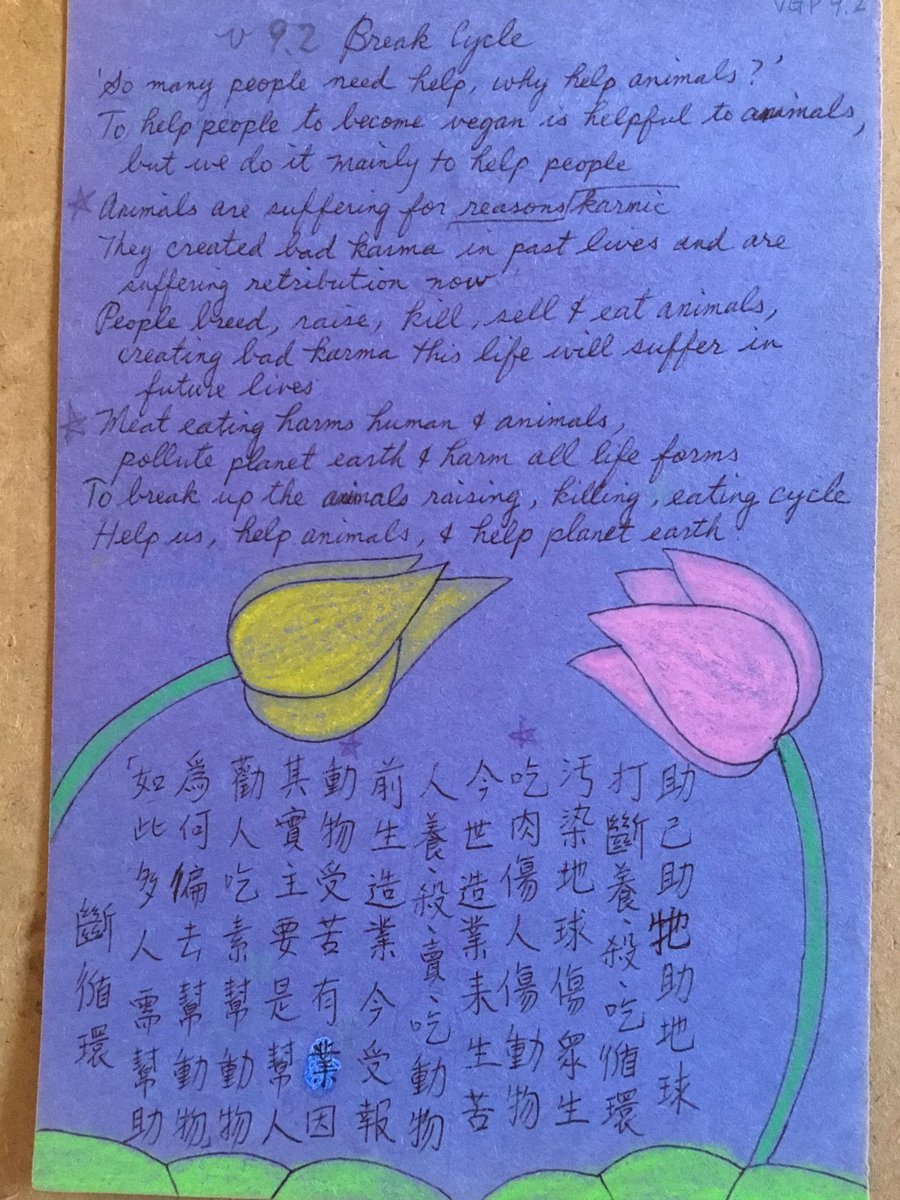 VGP 9.2
V 9.2 Break Cycle
'So many people need help, why help animals?'
To help people to become vegan is helpful to animals,
but we do it mainly to help people
Animals are suffering for reasons karmic
They created bad karma in past lives and are
suffering retribution now
People breed, raise, kill, sell & eat animals,
creating bad karma this life will suffer in
future lives
Meat eating harms human & animals,
pollute planet earth & harm all life forms
To break up the animals raising, killing, eating cycle
Help us, help animals, & help planet earth
斷循環
「如此多人需幫助
為何偏去幫動物
勸人吃素幫動物
其實主要是幫人
動物受苦有業因
前生造業今受報
人養、殺、賣、吃動物
今世造業来生苦
吃肉傷人傷動物
污染地球傷眾生
打斷養、殺、吃循環
助己助牠助地球